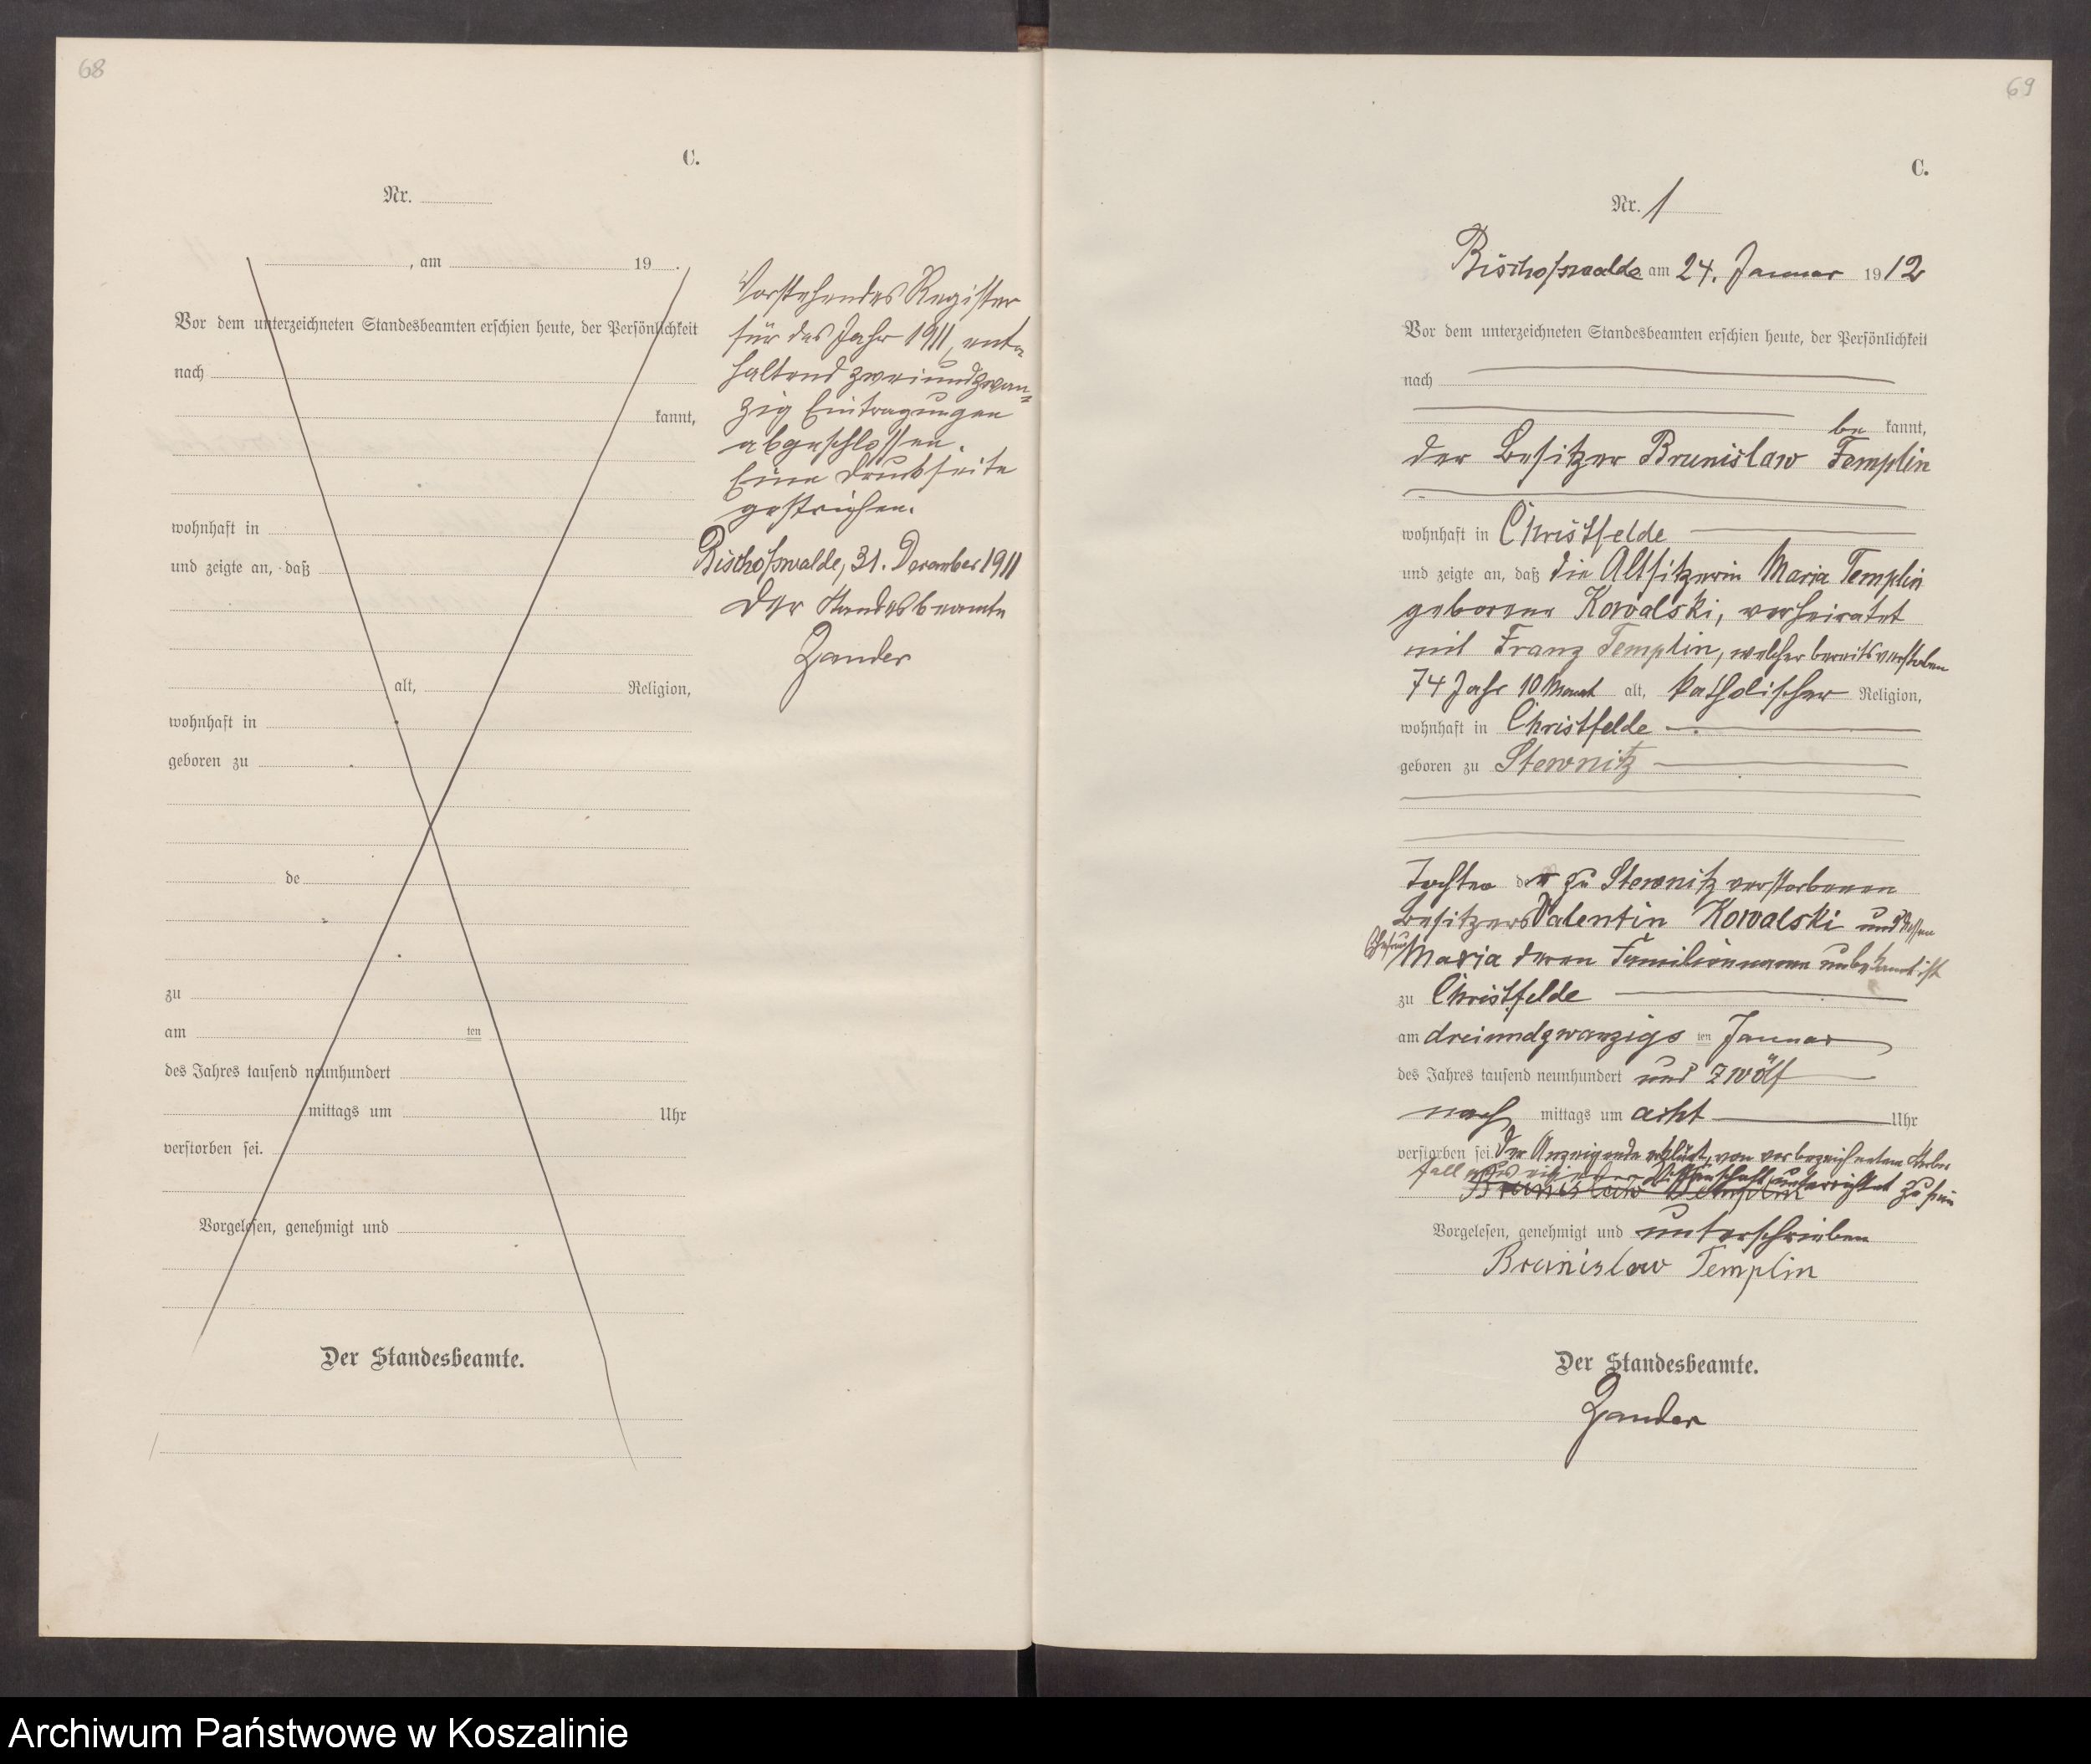 68
C.
Nr.
, am 19 .
Vor dem unterzeichneten Standesbeamten erschien heute, der Persönlichkeit
nach
kannt,
wohnhaft in
und zeigte an, daß
alt, Religion,
wohnhaft in
geboren zu
de
zu
am ten
des Jahres tausend neunhundert
mittags um Uhr
verstorben sei.
Vorgelesen, genehmigt und
Der Standesbeamte.
Vorstehendes Register
für das Jahr 1911, ent=
haltend zweiundzwan=
zig Eintragungen
abgeschlossen.
Eine Druckseite
gestrichen.
Bischofswalde, 31. Dezember 1911
Der Standesbeamte
Zander
69
C.
Nr. 1
Bischofswalde am 24. Januar 1912
Vor dem unterzeichneten Standesbeamten erschien heute, der Persönlichkeit
nach
be kannt,
der Besitzer Brunislaw Templin
wohnhaft in Christfelde
und zeigte an, daß die Altsitzerin Maria Templin
geborene Kowalski, verheiratet
mit Franz Templin, welcher bereits verstorben
74 Jahr 10 Monat alt, katholischer Religion,
wohnhaft in Christfelde
geboren zu Stewnitz
Tochter der zu Stewnitz verstorbenen
Besitzers Valentin Kowalski und dessen
Ehefrau Maria deren Familienname unbekannt ist
zu Christfelde
am dreiundzwanzigs ten Januar
des Jahres tausend neunhundert und zwölf
nach mittags um acht Uhr
verstorben sei. Der Anzeigende erklärt, von vorbezeichnetem Sterbe
fall aus eigener Wissenschaft unterrichtet zu sein
Brunislaw Templin
Vorgelesen, genehmigt und unterschrieben
Brunislaw Templin
Der Standesbeamte.
Zander
Archiwum Państwowe w Koszalinie